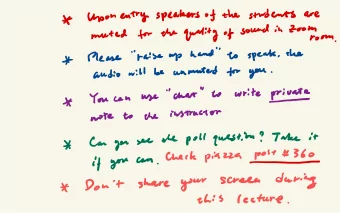 * Upon entry speakers of the students are
muted for the quality of sound in Zoom
room.
* Please "raise up hand" to speak, the
audio will be unmuted for you.
* You can use "chat" to write private
note to the instructor
* Can you see the poll question? Take it
if you can. Check piazza post # 360
* Don't share your screen during
this lecture.